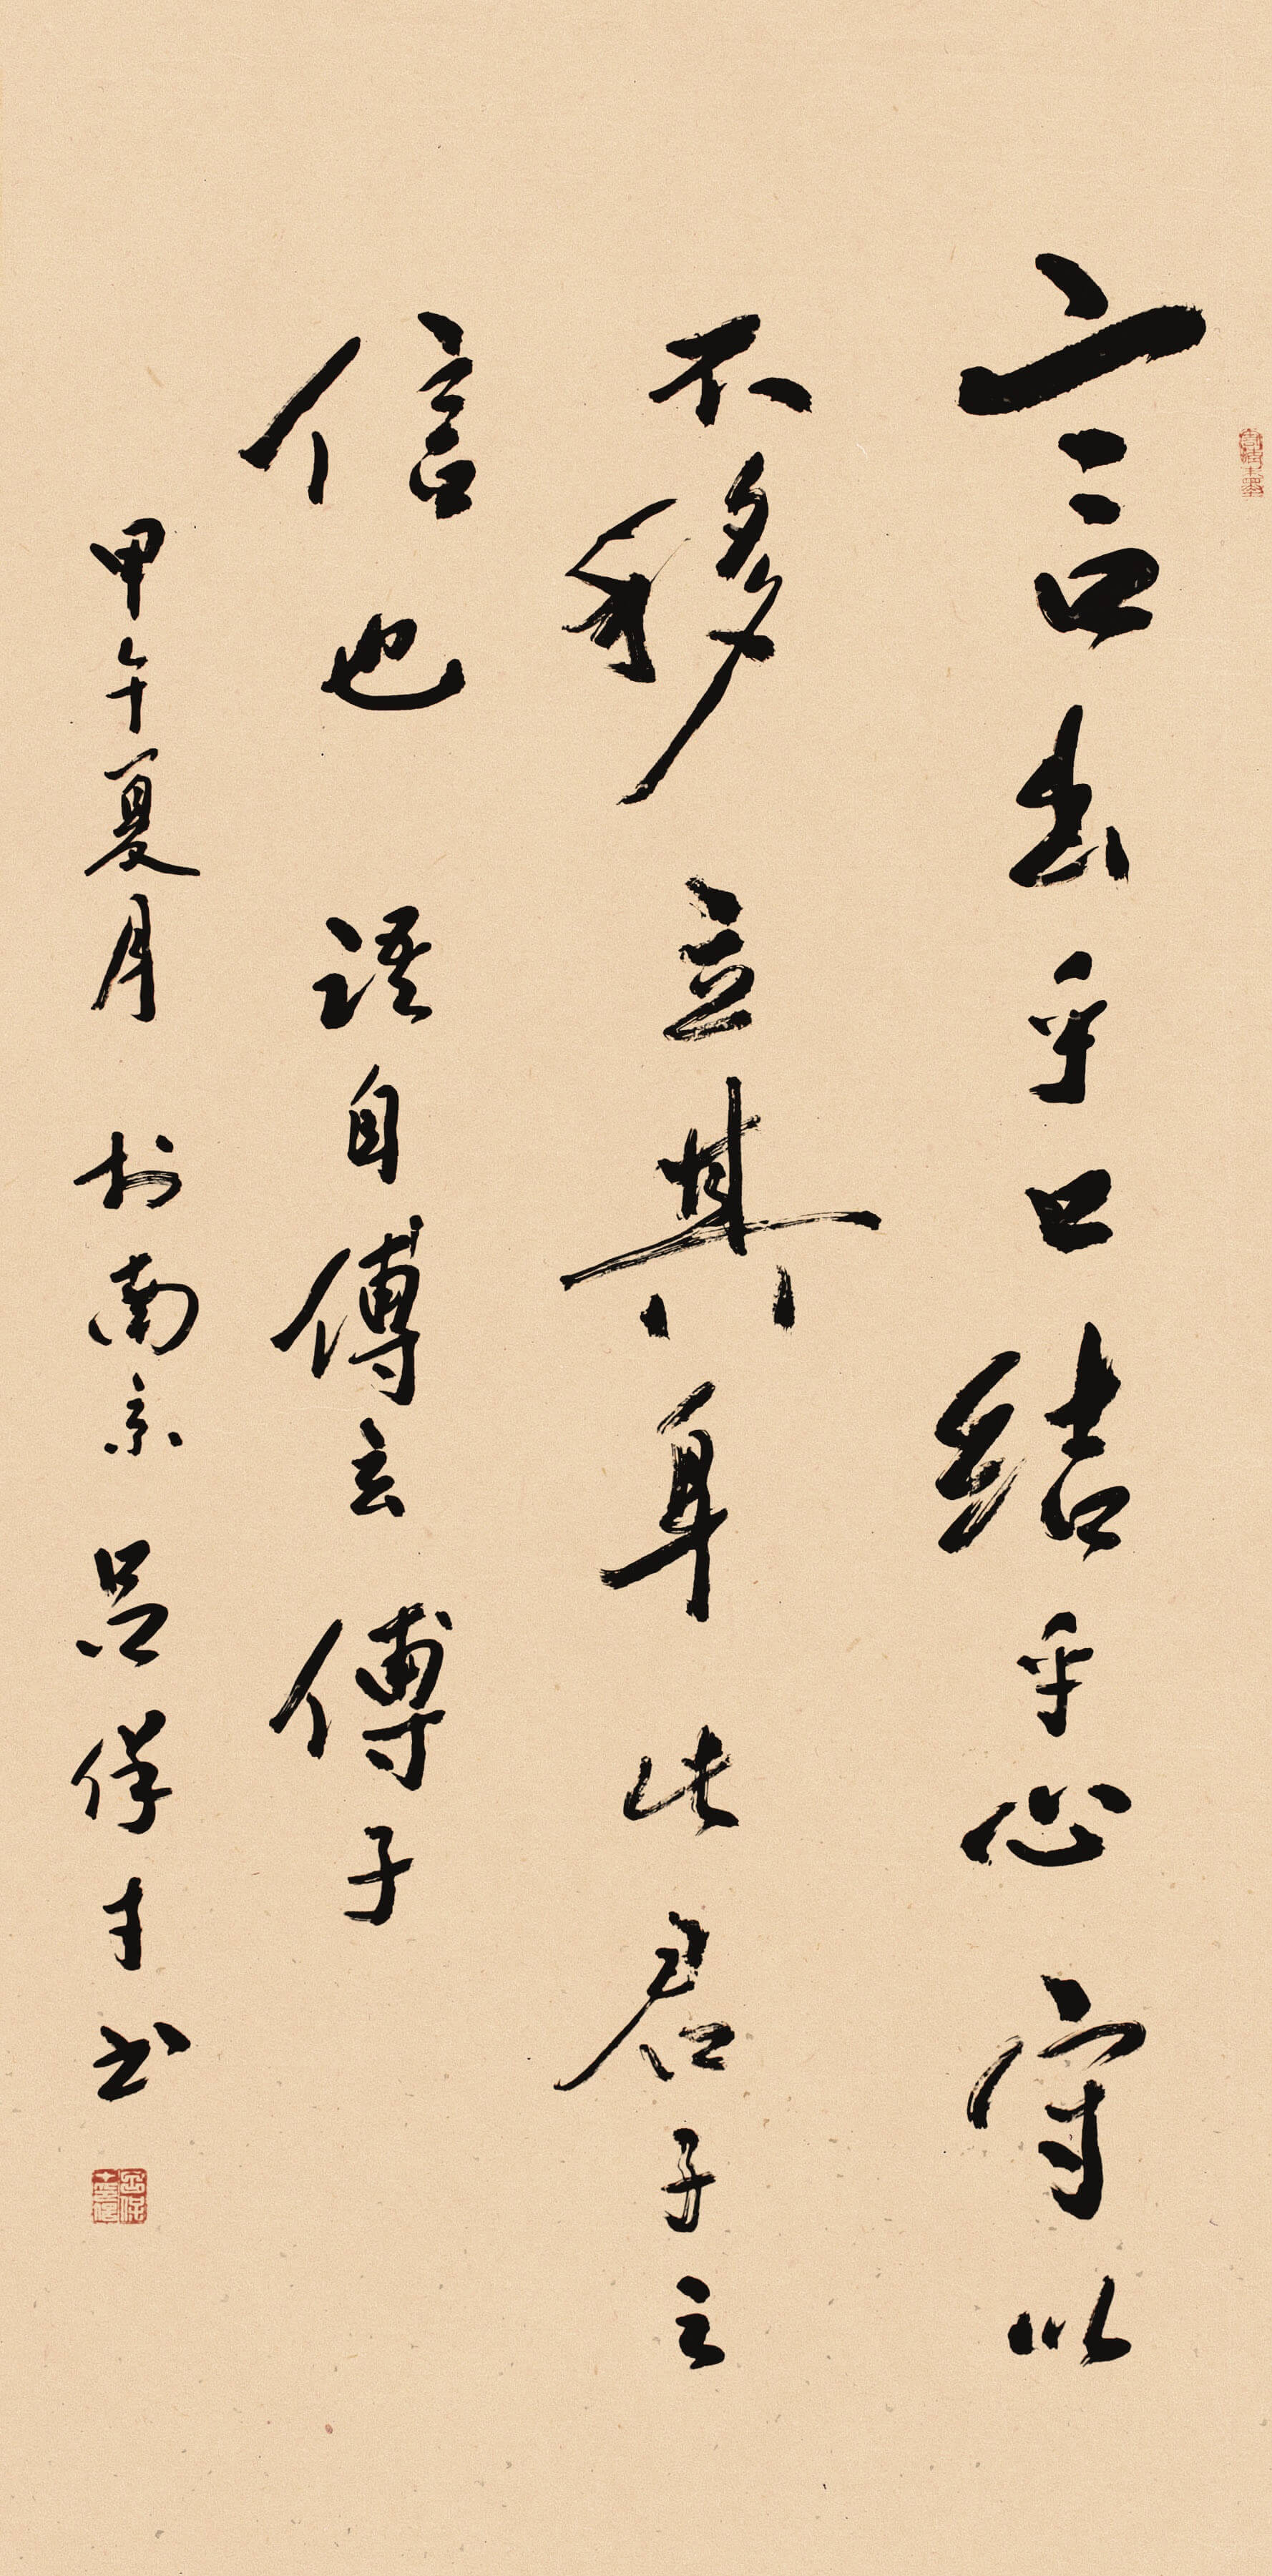 言出乎口結乎心守以
不移立其身此君子之
信也語自傅玄傅子
甲午夏月於南京吕保才书